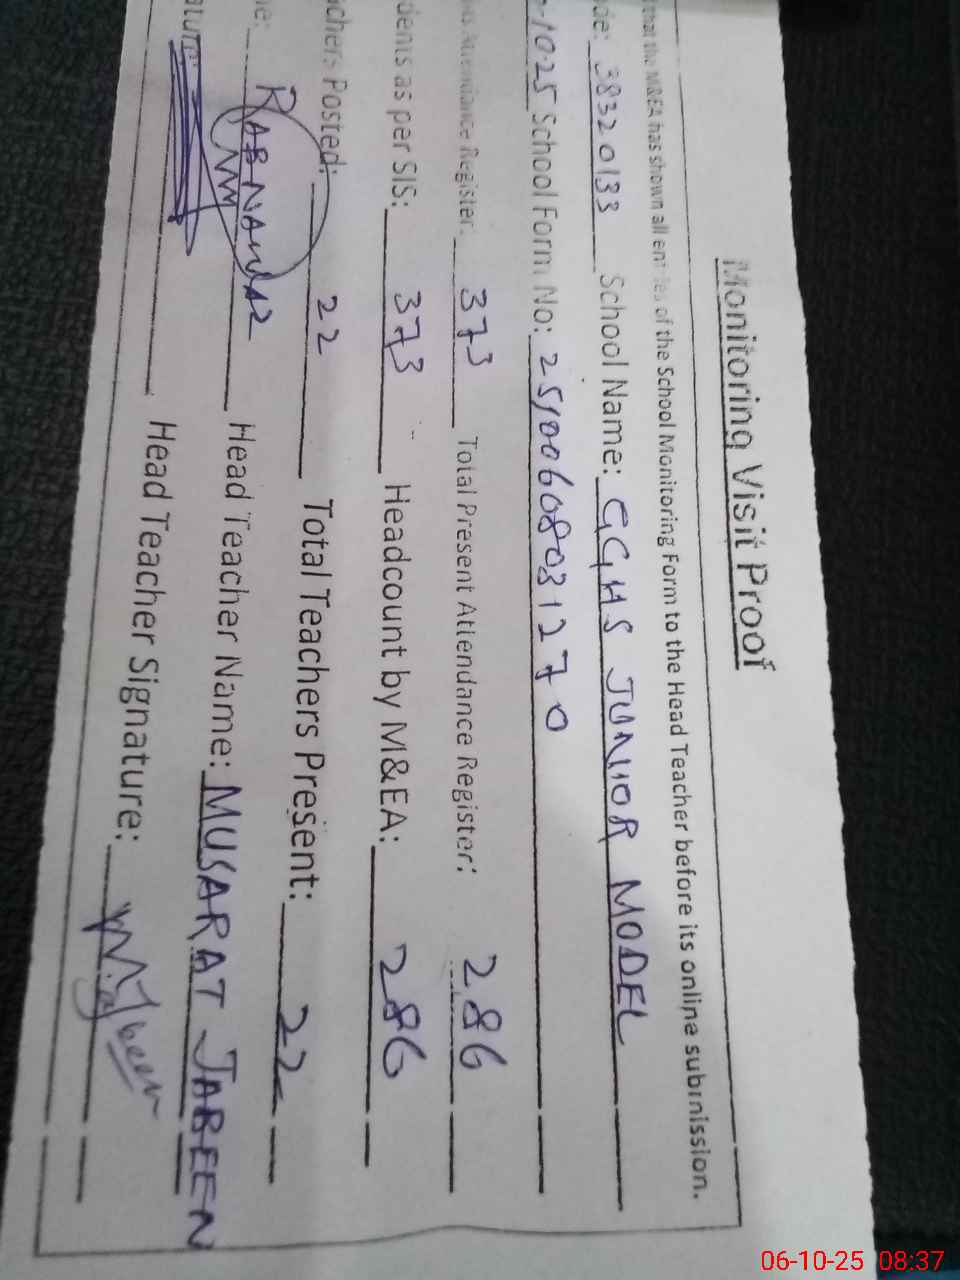 Monitoring Visit Proof
that the M&EA has shown all entries of the School Monitoring Form to the Head Teacher before its online submission.
de: 38320133 School Name: GGHS JUNIOR MODEL
-1025 School Form No: 25100608031270
Attendance Register: 373 Total Present Attendance Register: 286
dents as per SIS: 373 Headcount by M&EA: 286
chers Posted: 22 Total Teachers Present: 22
e: RABNAWAZ Head Teacher Name: MUSARAT JABEEN
ature: Head Teacher Signature:
06-10-25 08:37